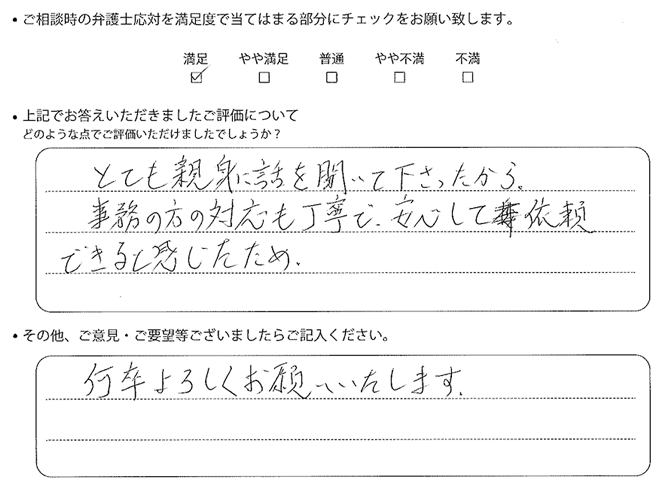 ・ご相談時の弁護士応対を満足度で当てはまる部分にチェックをお願い致します。
満足 やや満足 普通 やや不満 不満
☑ ☐ ☐ ☐ ☐
・上記でお答えいただきましたご評価について
どのような点でご評価いただけましたでしょうか?
とても親身に話を聞いて下さったから。
事務の方の対応も丁寧で、安心して依頼
できると感じたため。
・その他、ご意見・ご要望等ございましたらご記入ください。
何卒よろしくお願いいたします。